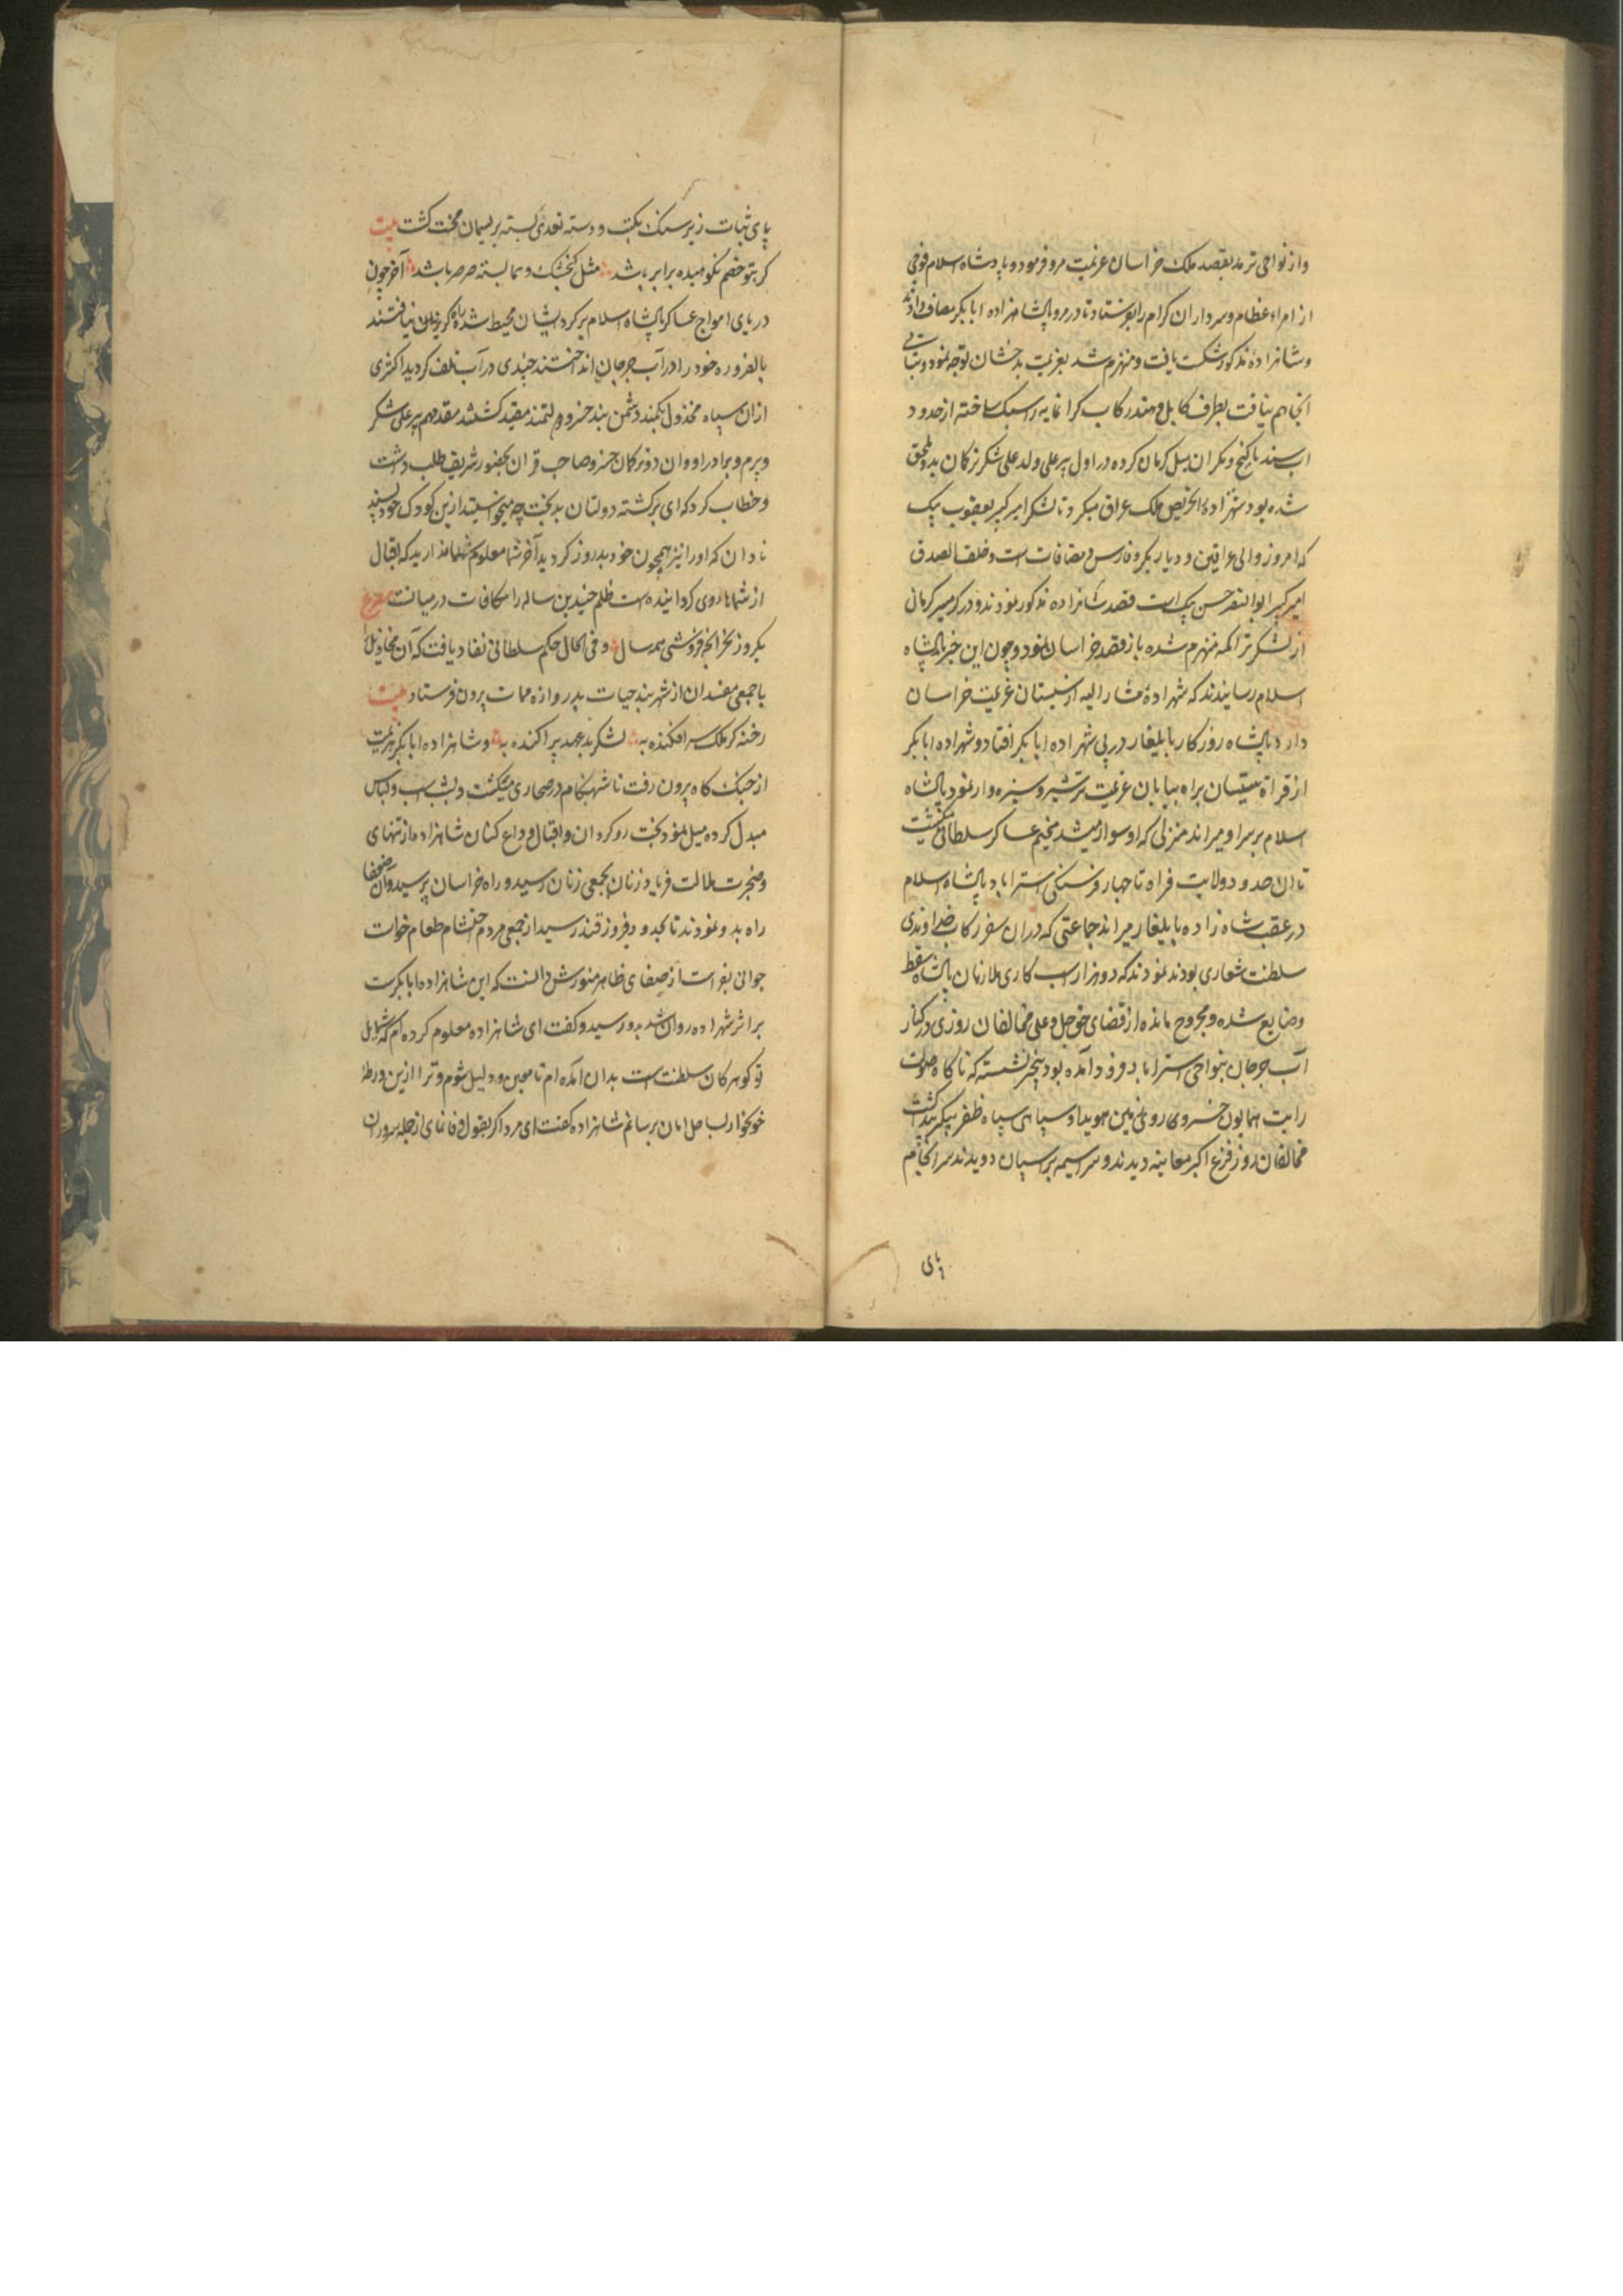 واز نواحی ترمد بقصد ملک خراسان عزیمت مرو فرمود و پادشاه اسلام فوجی
از امراء عظام و سرداران کرام را بفرستاد تا در مرو با شاهزاده ابابکر مصاف دادند
و شاهزاده مذکور شکست یافت و منهزم شد بعزیمت بدخشان توجه نمود و ثباتی
آنجا هم نیافت بطرف کابل و هند رکاب کرانمایه را سبک ساخته از حدود
آب سند تا کیج و مکران میل کرمان کرده در اول پیر علی ولد علی شکر ترکمان بدو ملحق
شده بود شهزاده را تحریص ملک عراق میکرد تا لشکر امیر کبیر یعقوب بیک
که امروز والی عراقین و دیاربکر و فارس و مضافات است و خلف الصدق
امیر کبیر ابوالنصر حسن بیک است قصد شاهزاده مذکور نمودند و در کرمسیر کرمان
از لشکر تراکمه منهزم شده باز قصد خراسان نمود و چون این خبر بپادشاه
اسلام رسانیدند که شهزادهٔ مشار الیه از سیستان عزیمت خراسان
دارد پادشاه روزکار بایلغار در پی شهزاده ابابکر افتاد و شهزاده ابابکر
از فراه سیستان براه بیابان عزیمت ترشیز و سبزه وار نمود پادشاه
اسلام بر سر او میراند منزلی که او سوار میشد مخیم عساکر سلطانی میکشت
تا از حدود ولایت فراه تا چهار فرسنکی استراباد پادشاه اسلام
در عقب شاه زاده بایلغار میراند جماعتی که در ان سفر رکاب خداوندی
سلطنت شعاری بودند نمودند که دو هزار اسب کاری ملازمان پادشاه سقط
و ضایع شده و مجروح مانده از قضای خدا عز و جل و علی مخالفان روزی در کنار
آب جرجان بنواحی استراباد فرود آمده بود بیخبر نشسته که ناکاه صولت
رایت همایون خسروی روی زمین هویدا و سیاهی سپاه ظفر پیکر پیدا کشت
مخالفان روز فزع اکبر معاینه دیدند و سراسیمه بر اسپان دویدند سرانجام
پای
پای ثبات زیر سنک نکبت و دست تعدی بسته بریسمان محنت کشت بیت
کر بتو خصم نکوهیده برابر باشد مثل کنجشک و هما پشه و صرصر باشد آخر چون
دریای امواج عساکر پادشاه اسلام بر کرد ایشان محیط شد راه کریز نیافتند
بالضروره خود را در آب جرجان انداختند چندی در آب تلف کردید اکثری
ازان سپاه مخذول بکمند دشمن بند خسرو دولتمند مقید کشتند مقدمهم پیر علی شکر
و بیرم و برادر او وان دو ترکمان خسرو صاحب قران بحضور شریف طلب داشت
و خطاب کرد که ای برکشته دولتان بدبخت چه میخواستید ازین کودک خودپسند
نادان که اورا نیز همچون خود بدروز کردید آخر شما معلوم ندارید که اقبال
از شما روی کردانیده است ظلم چندین ساله را مکافات در میانست مصرع
یکروز بخر انچه فروشی همه سال و فی الحال حکم سلطانی نفاذ یافت که آن مخاذیل را
با جمعی مفسدان از شهربند حیات بدروازه ممات بیرون فرستاد بیت
رخنه کر ملک سر افکنده به لشکر بد عهد پراکنده به و شاهزاده ابابکر هزیمت
از جنک کاه بیرون رفت تا شب هنکام در صحاری میکشت و بشب اسب و لباس
مبدل کرده میل نمود بخت روکردان و اقبال وداع کنان شاهزاده از تنهای
و ضجرت و ملالت فریاد زنان بجمعی زنان رسید و راه خراسان پرسید و آن ضعفا
راه بدو نمودند تا بحدود فیروز قند رسید از جمعی مردم احشام طعام خواست
جوانی بفراست از صفای ظاهر منورش دانست که این شاهزاده ابابکرست
بر اثر شهزاده روان شد بدو رسید و کفت ای شاهزاده معلوم کرده ام که شمایل
تو کوهر کان سلطنت است بدان آمده ام تا معین و دلیل شوم و ترا ازین ورطه
خونخوار بساحل امان برسانم شاهزاده کفت ای مرد اکر بقول وفا نمای از جمله سروران